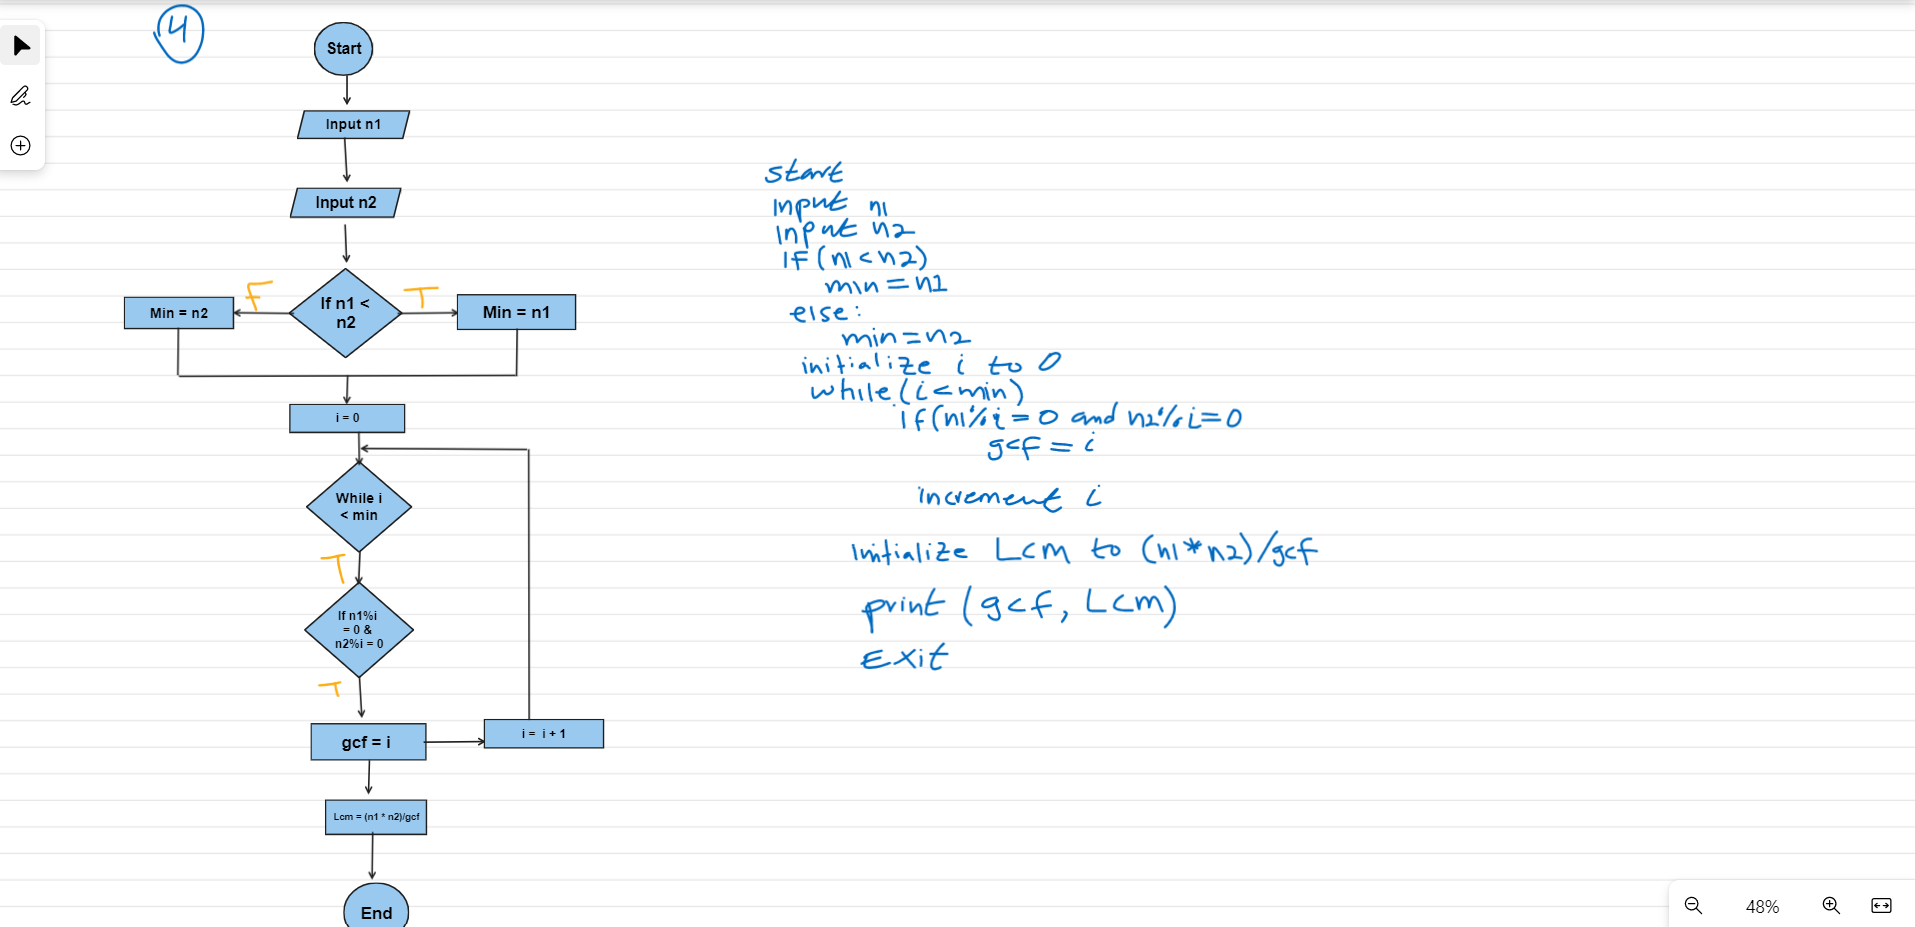 4
Start
Input n1
Input n2
If n1 <
n2
F
T
Min = n2
Min = n1
i = 0
While i
< min
T
If n1%i
= 0 &
n2%i = 0
T
gcf = i
i = i + 1
Lcm = (n1 * n2)/gcf
End
start
input n1
input n2
if (n1 < n2)
min = n1
else:
min = n2
initialize i to 0
while (i < min)
if (n1%i = 0 and n2%i = 0
gcf = i
increment i
initialize Lcm to (n1*n2)/gcf
print (gcf, Lcm)
Exit
48%